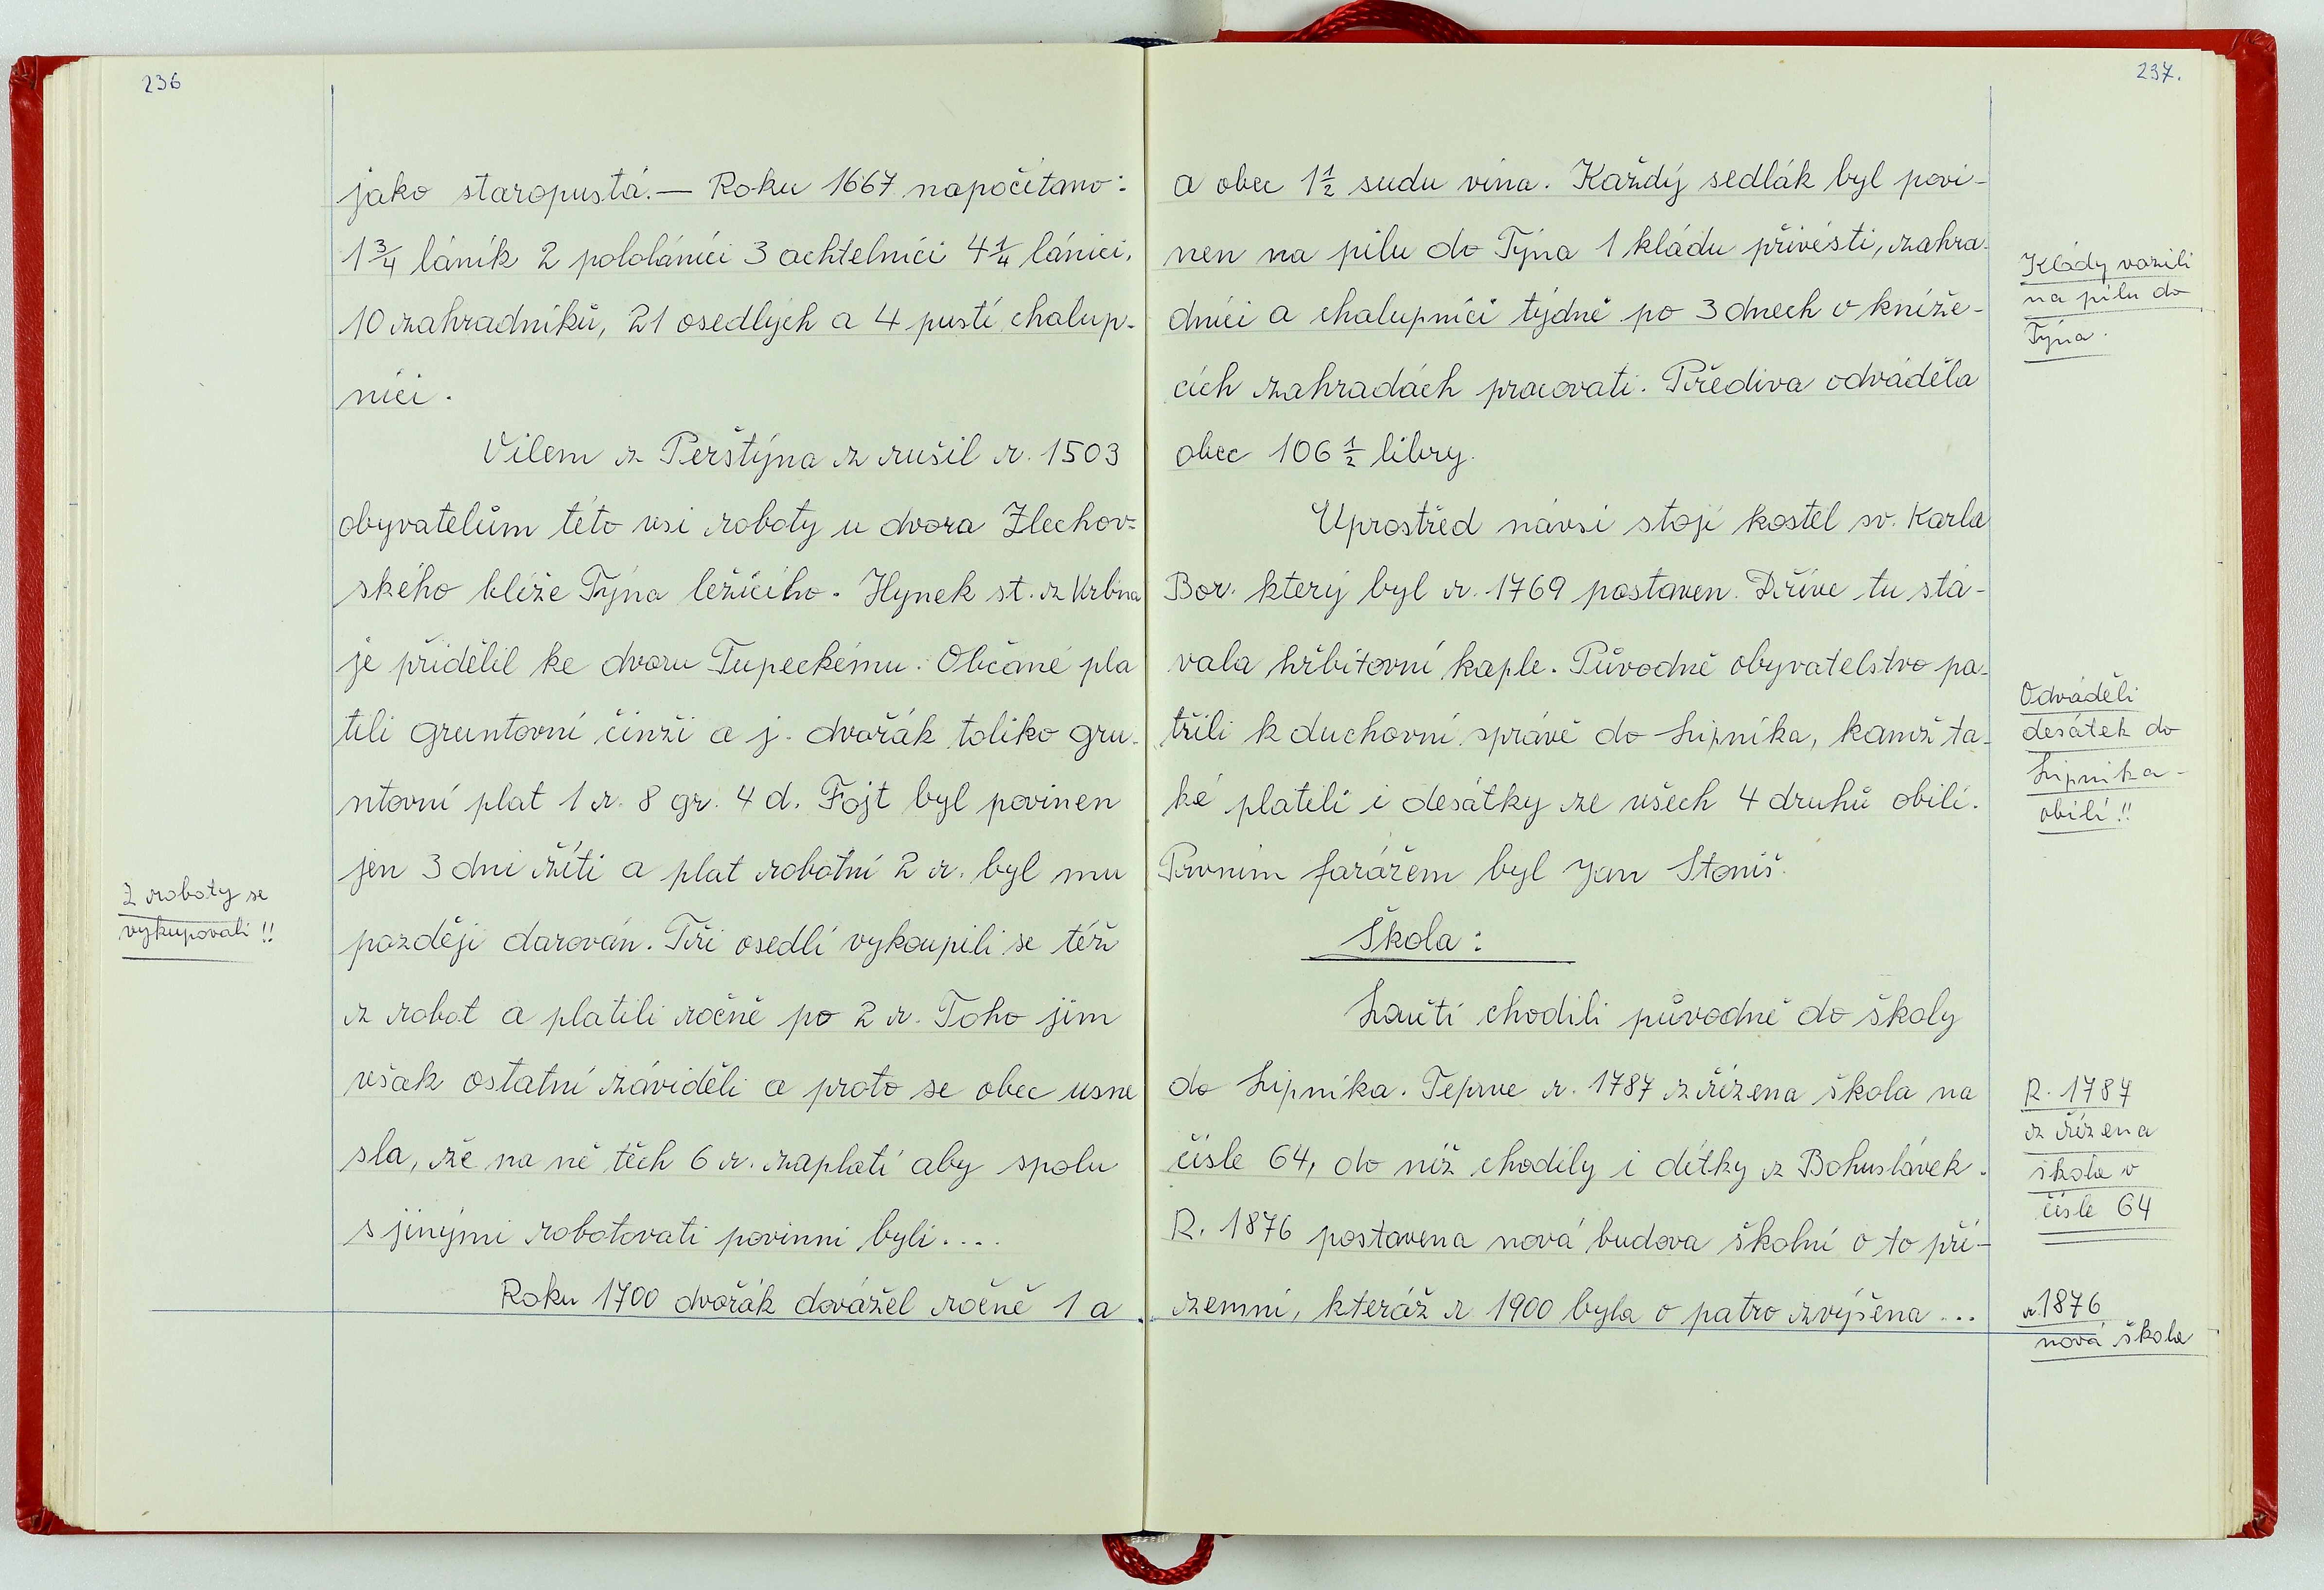 236
jako staropustá. — Roku 1667 napočítáno:
1 3/4 láník 2 pololáníci 3 achtelníci 4 1/4 láníci,
10 zahradníků, 21 osedlých a 4 pustí chalup-
níci.
Vilem z Perštýna z rušil r. 1503
obyvatelům této vsi roboty u dvora Zlechov=
ského blíže Týna ležícího. Hynek st. z Vrbna
je přidělil ke dvoru Tupeckému. Občané pla
tili gruntovní činži a j. dvořák toliko gru-
ntovní plat 1 r. 8 gr. 4 d. Fojt byl povinen
jen 3 dni žíti a plat robotní 2 r. byl mu
později darován. Tři osedlí vykoupili se též
z robot a platili ročně po 2 r. Toho jim
však ostatní záviděli a proto se obec usne
sla, že na ně těch 6 r. zaplatí aby spolu
s jinými robotovati povinni byli....
Roku 1700 dvořák dovážel ročně 1 a
Z roboty se
vykupovali !!
237.
a obec 1 1/2 sudu vína. Každý sedlák byl povi-
nen na pilu do Týna 1 kládu přivésti, zahra-
dníci a chalupníci týdně po 3 dnech v kníže-
cích zahradách pracovati. Přediva odváděla
obec 106 1/2 libry.
Uprostřed návsi stojí kostel sv. Karla
Bor. který byl r. 1769 postaven. Dříve tu stá-
vala hřbitovní kaple. Původně obyvatelstvo pa-
třili k duchovní správě do Lipníka, kamž ta-
ké platili i desátky ze všech 4 druhů obilí.
Prvním farářem byl Jan Stoniš.
Škola:
Loučtí chodili původně do školy
do Lipníka. Teprve r. 1787 z řízena škola na
čísle 64, do níž chodily i dítky z Bohuslávek.
R. 1876 postavena nová budova školní o to pří-
zemní, kteráž r 1900 byla o patro zvýšena...
Klády vozili
na pilu do
Týna.
Odváděli
desátek do
Lipníka -
obilí !!
R. 1787
z řízena
škola v
čísle 64
r. 1876
nová škola